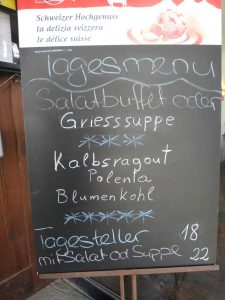 Schweizer Hochgenuss
la delizia svizzera
le délice suisse
Tagesmenu
Salatbuffet oder
Griesssuppe
Kalbsragout
Polenta
Blumenkohl
Tagesteller 18
mit Salat od Suppe 22